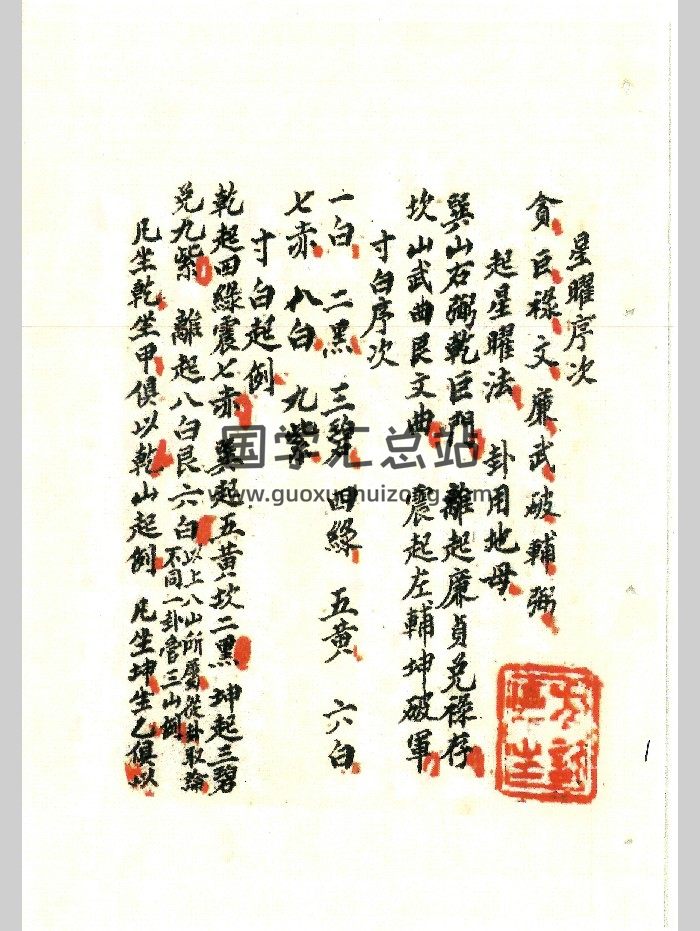 星曜序次
貪巨祿文廉武破輔弼
起星曜法 卦用地母
巽山右弼乾巨門 離起廉貞兌祿存
坎山武曲艮文曲 震起左輔坤破軍
寸白序次
一白 二黑 三碧 四綠 五黃 六白
七赤 八白 九紫
寸白起例
乾起四綠震七赤 巽起五黃坎二黑 坤起三碧
兌九紫 離起八白艮六白 以上八山所屬從卦取論
不同一卦管三山例
凡坐乾坐甲俱以乾山起例 凡坐坤坐乙俱以
国学汇总站
www.guoxuehuizong.com
1